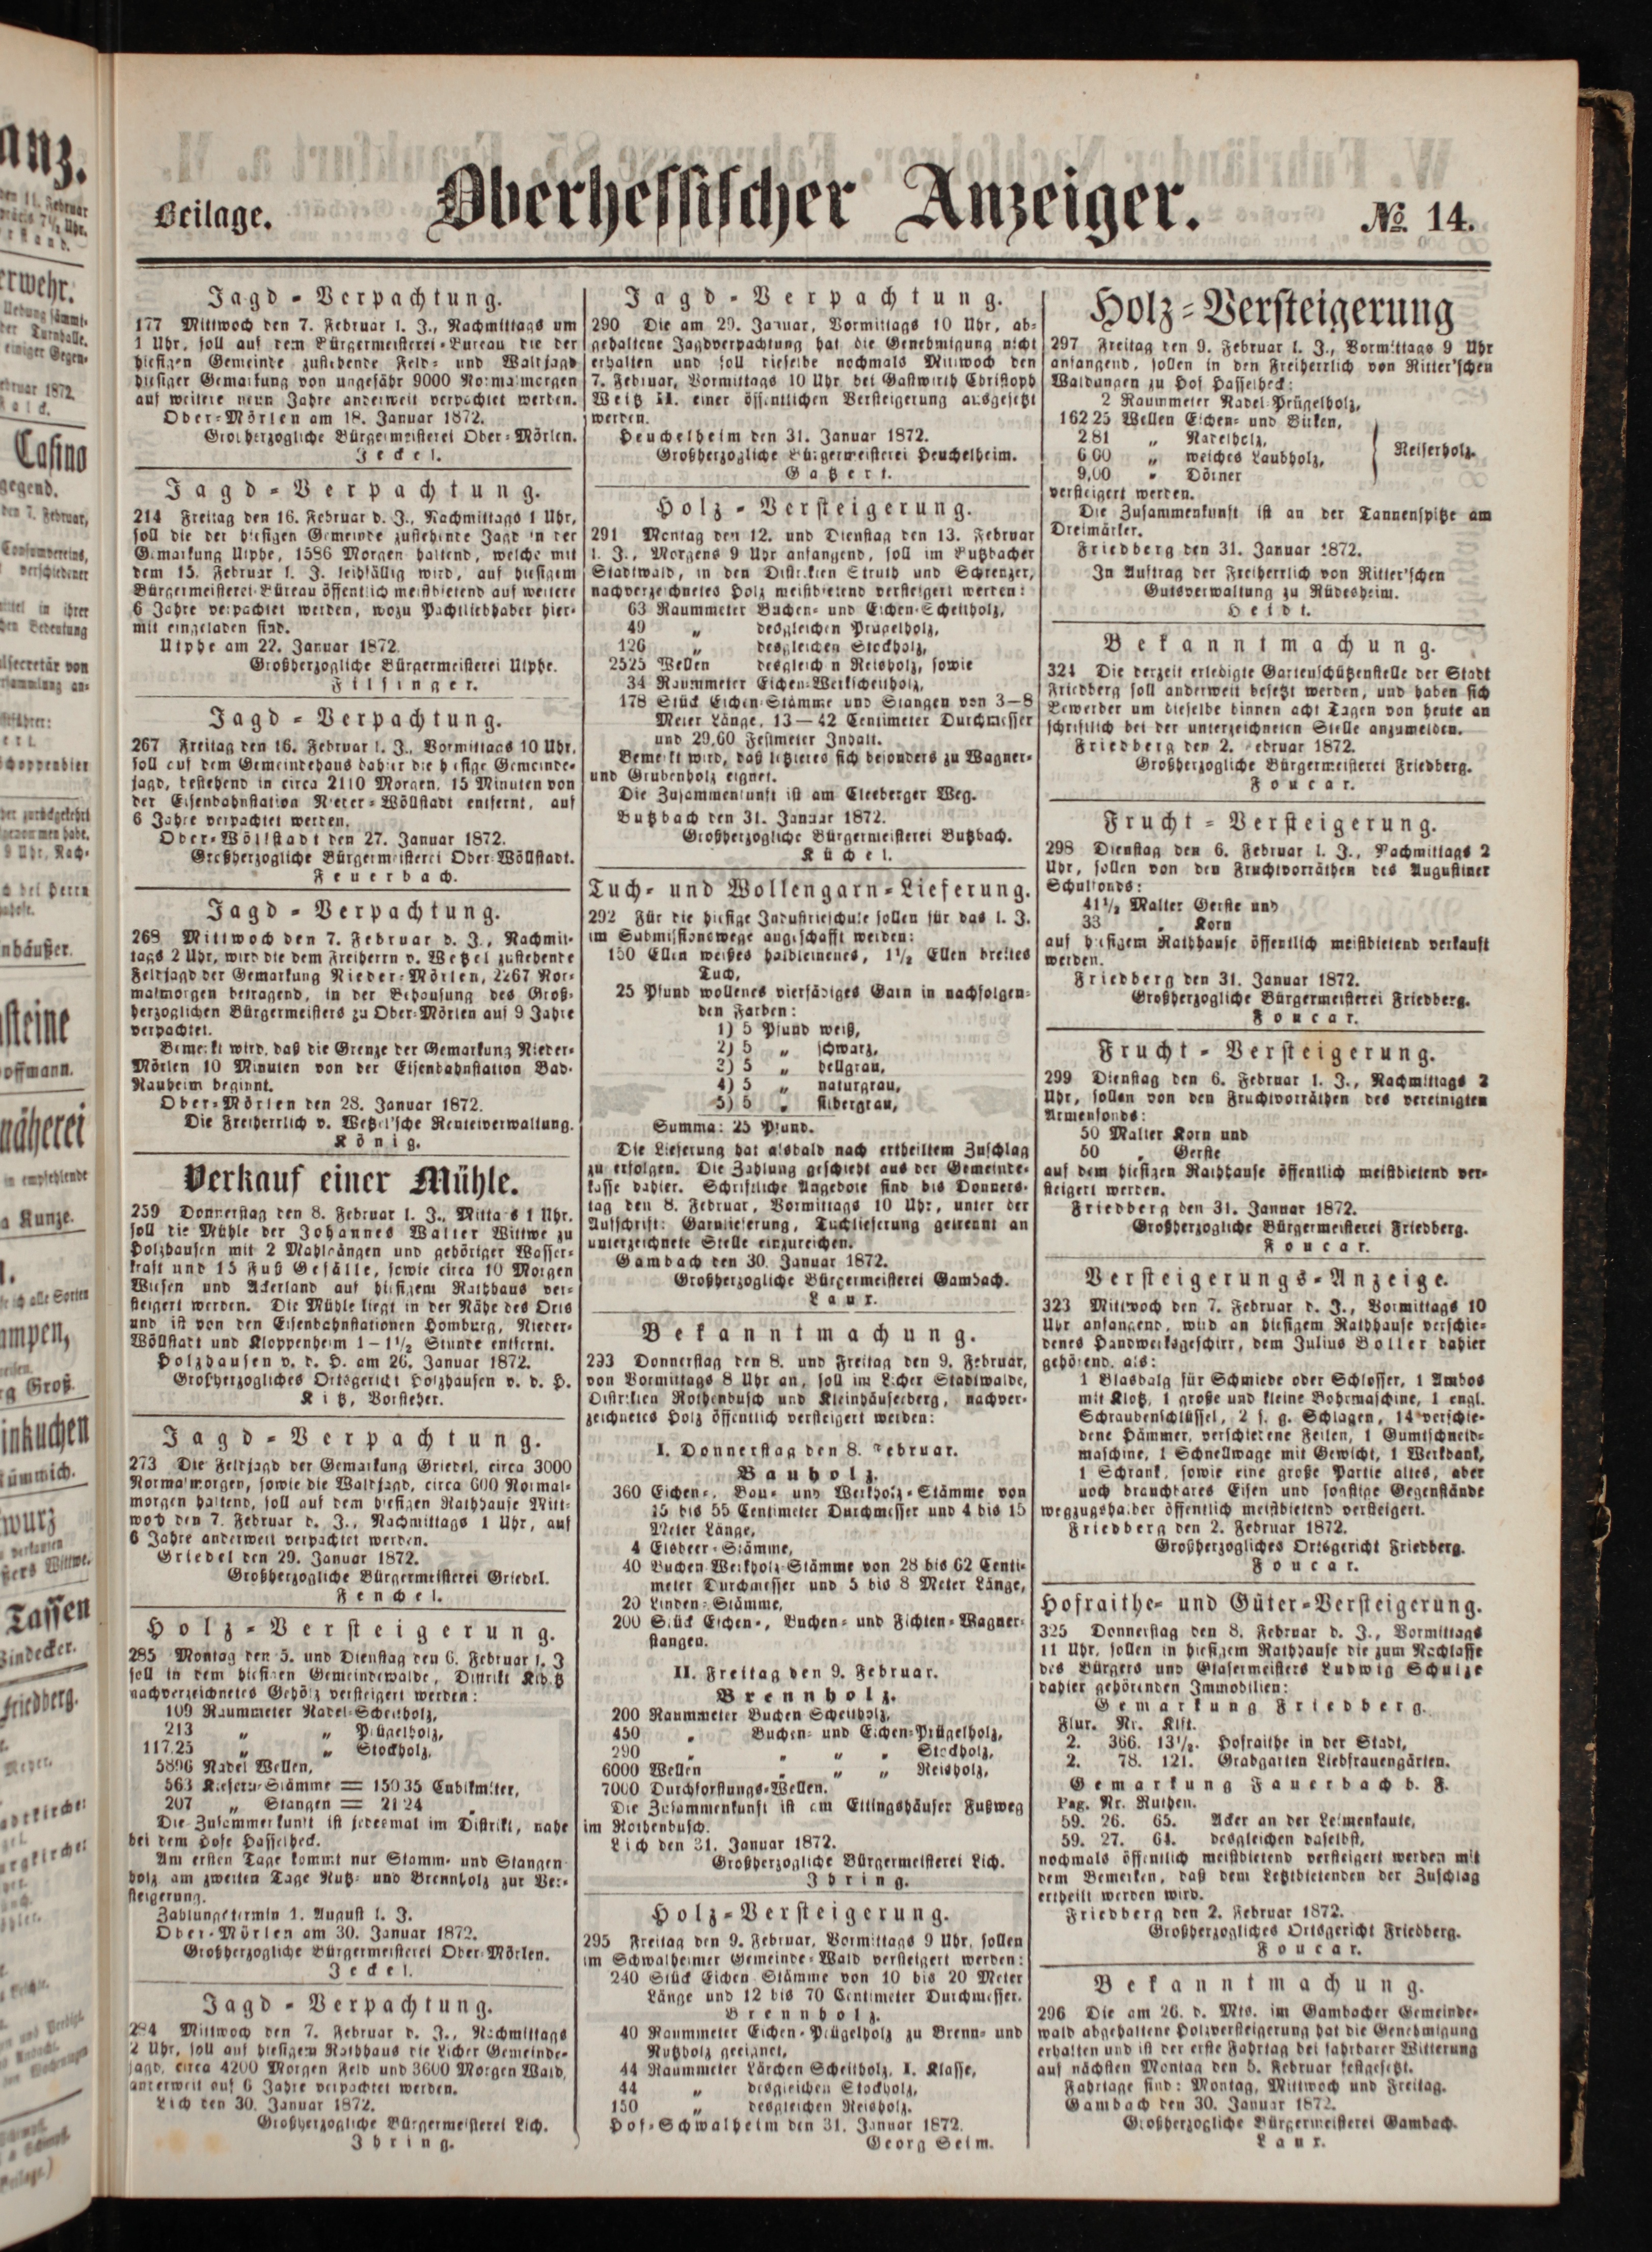 Beilage.
Oberhessischer Anzeiger.
№ 14.
Jagd-Verpachtung.
177 Mittwoch den 7. Februar l. J., Nachmittags um
1 Uhr, soll auf dem Bürgermeisterei-Bureau die der
hiesigen Gemeinde zustehende Feld- und Waldjagd
hiesiger Gemarkung von ungefähr 9000 Normalmorgen
auf weitere neun Jahre anderweit verpachtet werden.
Ober-Mörlen am 18. Januar 1872.
Großherzogliche Bürgermeisterei Ober-Mörlen.
Jeckel.
Jagd-Verpachtung.
214 Freitag den 16. Februar d. J., Nachmittags 1 Uhr,
soll die der hiesigen Gemeinde zustehende Jagd in der
Gemarkung Utphe, 1586 Morgen haltend, welche mit
dem 15. Februar l. J. leihfällig wird, auf hiesigem
Bürgermeisterei-Büreau öffentlich meistbietend auf weitere
6 Jahre verpachtet werden, wozu Pachtliebhaber hier-
mit eingeladen sind.
Utphe am 22. Januar 1872.
Großherzogliche Bürgermeisterei Utphe.
Filsinger.
Jagd-Verpachtung.
267 Freitag den 16. Februar l. J., Vormittags 10 Uhr,
soll auf dem Gemeindehaus dahier die hiesige Gemeinde-
jagd, bestehend in circa 2110 Morgen, 15 Minuten von
der Eisenbahnstation Nieder-Wöllstadt entfernt, auf
6 Jahre verpachtet werden.
Ober-Wöllstadt den 27. Januar 1872.
Großherzogliche Bürgermeisterei Ober-Wöllstadt.
Feuerbach.
Jagd-Verpachtung.
268 Mittwoch den 7. Februar d. J., Nachmit-
tags 2 Uhr, wird die dem Freiherrn v. Wetzel zustehende
Feldjagd der Gemarkung Nieder-Mörlen, 2267 Nor-
malmorgen betragend, in der Behausung des Groß-
herzoglichen Bürgermeisters zu Ober-Mörlen auf 9 Jahre
verpachtet.
Bemerkt wird, daß die Grenze der Gemarkung Nieder-
Mörlen 10 Minuten von der Eisenbahnstation Bad-
Nauheim beginnt.
Ober-Mörlen den 28. Januar 1872.
Die Freiherrlich v. Wetzel'sche Renteiverwaltung.
König.
Verkauf einer Mühle.
259 Donnerstag den 8. Februar l. J., Mittags 1 Uhr,
soll die Mühle der Johannes Walter Wittwe zu
Holzhausen mit 2 Mahlgängen und gehöriger Wasser-
kraft und 15 Fuß Gefälle, sowie circa 10 Morgen
Wiesen und Ackerland auf hiesigem Rathhaus ver-
steigert werden. Die Mühle liegt in der Nähe des Orts
und ist von den Eisenbahnstationen Homburg, Nieder-
Wöllstadt und Kloppenheim 1-1½ Stunde entfernt.
Holzhausen v. d. H. am 26. Januar 1872.
Großherzogliches Ortsgericht Holzhausen v. d. H.
Kitz, Vorsteher.
Jagd-Verpachtung.
273 Die Feldjagd der Gemarkung Griedel, circa 3000
Normalmorgen, sowie die Waldjagd, circa 600 Normal-
morgen haltend, soll auf dem hiesigen Rathhause Mitt-
woch den 7. Februar d. J., Nachmittags 1 Uhr, auf
6 Jahre anderweit verpachtet werden.
Griedel den 29. Januar 1872.
Großherzogliche Bürgermeisterei Griedel.
Fenchel.
Holz-Versteigerung.
285 Montag den 5. und Dienstag den 6. Februar l. J
soll in dem hiesigen Gemeindewalde, Distrikt
nachverzeichnetes Gehölz versteigert werden:
109 Raummeter Nadel-Scheitholz,
213 „ „ Prügelholz,
117,25 „ „ Stockholz,
5896 Nadel Wellen,
563 Kiefern-Stämme = 150 35 Cubikmeter,
207 „ Stangen = 21 24 „
Die Zusammenkunft ist jedesmal im Distrikt, nahe
bei dem Hofe Hasselheck.
Am ersten Tage kommt nur Stamm- und Stangen
holz am zweiten Tage Nutz- und Brennholz zur Ver-
steigerung.
Zahlungstermin 1. August l. J.
Ober-Mörlen am 30. Januar 1872.
Großherzogliche Bürgermeisterei Ober-Mörlen.
Jeckel.
Jagd-Verpachtung.
284 Mittwoch den 7. Februar d. J., Nachmittags
2 Uhr, soll auf hiesigem Rathhaus die Licher Gemeinde-
jagd, circa 4200 Morgen Feld und 3600 Morgen Wald,
anderweit auf 6 Jahre verpachtet werden.
Lich den 30. Januar 1872.
Großherzogliche Bürgermeisterei Lich.
Ihring.
Jagd-Verpachtung.
290 Die am 29. Januar, Vormittags 10 Uhr, ab-
gehaltene Jagdverpachtung hat die Genehmigung nicht
erhalten und soll dieselbe nochmals Mittwoch den
7. Februar, Vormittags 10 Uhr bei Gastwirth Christoph
Weitz II. einer öffentlichen Versteigerung ausgesetzt
werden.
Heuchelheim den 31. Januar 1872.
Großherzogliche Bürgermeisterei Heuchelheim.
Gatzert.
Holz-Versteigerung.
291 Montag den 12. und Dienstag den 13. Februar
l. J., Morgens 9 Uhr anfangend, soll im Butzbacher
Stadtwald, in den Distrikten Struth und Schrenzer,
nachverzeichnetes Holz meistbietend versteigert werden:
63 Raummeter Buchen- und Eichen-Scheitholz,
49 „ desgleichen Prügelholz,
126 „ desgleichen Stockholz,
2525 Wellen desgleichen Reisholz, sowie
34 Raummeter Eichen-Werkscheitholz,
178 Stück Eichen Stämme und Stangen von 3—8
Meter Länge, 13—42 Centimeter Durchmesser
und 29,60 Festmeter Inhalt.
Bemerkt wird, daß letzteres sich besonders zu Wagner-
und Grubenholz eignet.
Die Zusammenkunft ist am Cleeberger Weg.
Butzbach den 31. Januar 1872.
Großherzogliche Bürgermeisterei Butzbach.
Küchel.
Tuch- und Wollengarn-Lieferung.
292 Für die hiesige Industrieschule sollen für das l. J.
im Submissionswege angeschafft werden:
150 Ellen weißes halbleinenes, 1½ Ellen breites
Tuch,
25 Pfund wollenes vierfädiges Garn in nachfolgen-
den Farben:
1) 5 Pfund weiß,
2) 5 „ schwarz,
3) 5 „ hellgrau,
4) 5 „ naturgrau,
5) 5 „ silbergrau,
Summa: 25 Pfund.
Die Lieferung hat alsbald nach ertheiltem Zuschlag
zu erfolgen. Die Zahlung geschieht aus der Gemeinde-
kasse dahier. Schriftliche Angebote sind bis Donners-
tag den 8. Februar, Vormittags 10 Uhr, unter der
Aufschrift: Garnlieferung, Tuchlieferung getrennt an
unterzeichnete Stelle einzureichen.
Gambach den 30. Januar 1872.
Großherzogliche Bürgermeisterei Gambach.
Laur.
Bekanntmachung.
293 Donnerstag den 8. und Freitag den 9. Februar,
von Vormittags 8 Uhr an, soll im Licher Stadtwalde,
Distrikten Rothenbusch und Kleinhäuserberg, nachver-
zeichnetes Holz öffentlich versteigert werden:
I. Donnerstag den 8. Februar.
Bauholz.
360 Eichen-, Bau- und Werkholz-Stämme von
15 bis 55 Centimeter Durchmesser und 4 bis 15
Meter Länge,
4 Elsbeer-Stämme,
40 Buchen Werkholz-Stämme von 28 bis 62 Centi-
meter Durchmesser und 5 bis 8 Meter Länge,
20 Linden-Stämme,
200 Stück Eichen-, Buchen- und Fichten-Wagner-
stangen.
II. Freitag den 9. Februar.
Brennholz.
200 Raummeter Buchen Scheitholz,
450 „ Buchen- und Eichen-Prügelholz,
290 „ „ „ „ Stockholz,
6000 Wellen „ „ „ Reisholz,
7000 Durchforstungs-Wellen.
Die Zusammenkunft ist am Ettingshäuser Fußweg
im Rothenbusch.
Lich den 31. Januar 1872.
Großherzogliche Bürgermeisterei Lich.
Ihring.
Holz-Versteigerung.
295 Freitag den 9. Februar, Vormittags 9 Uhr, sollen
im Schwalheimer Gemeinde-Wald versteigert werden:
240 Stück Eichen Stämme von 10 bis 20 Meter
Länge und 12 bis 70 Centimeter Durchmesser.
Brennholz.
40 Raummeter Eichen-Prügelholz zu Brenn- und
Nutzholz geeignet,
44 Raummeter Lärchen Scheitholz, I. Klasse,
44 „ desgleichen Stockholz,
150 „ desgleichen Reisholz.
Hof-Schwalheim den 31. Januar 1872.
Georg Seim.
Holz-Versteigerung
297 Freitag den 9. Februar l. J., Vormittags 9 Uhr
anfangend, sollen in den Freiherrlich von Ritter'schen
Waldungen zu Hof Hasselheck:
2 Raummeter Nadel-Prügelholz,
162 25 Wellen Eichen- und Birken,
2 81 „ Nadelholz,
6 00 „ weiches Laubholz,
9,00 „ Dörner
Reiserholz.
versteigert werden.
Die Zusammenkunft ist an der Tannenspitze am
Dreimärker.
Friedberg den 31. Januar 1872.
In Auftrag der Freiherrlich von Ritter'schen
Gutsverwaltung zu Rüdesheim.
Heidt.
Bekanntmachung.
324 Die derzeit erledigte Gartenschützenstelle der Stadt
Friedberg soll anderweit besetzt werden, und haben sich
Bewerber um dieselbe binnen acht Tagen von heute an
schriftlich bei der unterzeichneten Stelle anzumelden.
Friedberg den 2. Februar 1872.
Großherzogliche Bürgermeisterei Friedberg.
Foucar.
Frucht-Versteigerung.
298 Dienstag den 6. Februar l. J., Nachmittags 2
Uhr, sollen von den Fruchtvorräthen des Augustiner
Schulfonds:
41½ Malter Gerste und
33 „ Korn
auf hiesigem Rathhause öffentlich meistbietend verkauft
werden.
Friedberg den 31. Januar 1872.
Großherzogliche Bürgermeisterei Friedberg.
Foucar.
Frucht-Versteigerung.
299 Dienstag den 6. Februar l. J., Nachmittags 2
Uhr, sollen von den Fruchtvorräthen des vereinigten
Armenfonds:
50 Malter Korn und
50 „ Gerste
auf dem hiesigen Rathhause öffentlich meistbietend ver-
steigert werden.
Friedberg den 31. Januar 1872.
Großherzogliche Bürgermeisterei Friedberg.
Foucar.
Versteigerungs-Anzeige.
323 Mittwoch den 7. Februar d. J., Vormittags 10
Uhr anfangend, wird an hiesigem Rathhause verschie-
denes Handwerksgeschirr, dem Julius Boller dahier
gehörend, als:
1 Blasbalg für Schmiede oder Schlosser, 1 Ambos
mit Klotz, 1 große und kleine Bohrmaschine, 1 engl.
Schraubenschlüssel, 2 s. g. Schlagen, 14 verschie-
dene Hämmer, verschiedene Feilen, 1 Gumischneid-
maschine, 1 Schnellwage mit Gewicht, 1 Werkbank,
1 Schrank, sowie eine große Partie altes, aber
noch brauchbares Eisen und sonstige Gegenstände
wegzugshalber öffentlich meistbietend versteigert.
Friedberg den 2. Februar 1872.
Großherzogliches Ortsgericht Friedberg.
Foucar.
Hofraithe- und Güter-Versteigerung.
325 Donnerstag den 8. Februar d. J., Vormittags
11 Uhr, sollen in hiesigem Rathhause die zum Nachlasse
des Bürgers und Glasermeisters Ludwig Schulze
dahier gehörenden Immobilien:
Gemarkung Friedberg.
Flur. Nr. Klft.
2. 366. 13½. Hofraithe in der Stadt,
2. 78. 121. Grabgarten Liebfrauengärten.
Gemarkung Fauerbach b. F.
Pag. Nr. Ruthen.
59. 26. 65. Acker an der Leimenkaute,
59. 27. 64. desgleichen daselbst,
nochmals öffentlich meistbietend versteigert werden mit
dem Bemerken, daß dem Letztbietenden der Zuschlag
ertheilt werden wird.
Friedberg den 2. Februar 1872.
Großherzogliches Ortsgericht Friedberg.
Foucar.
Bekanntmachung.
296 Die am 26. d. Mts. im Gambacher Gemeinde-
wald abgehaltene Holzversteigerung hat die Genehmigung
erhalten und ist der erste Fahrtag bei fahrbarer Witterung
auf nächsten Montag den 5. Februar festgesetzt.
Fahrtage sind: Montag, Mittwoch und Freitag.
Gambach den 30. Januar 1872.
Großherzogliche Bürgermeisterei Gambach.
Laur.